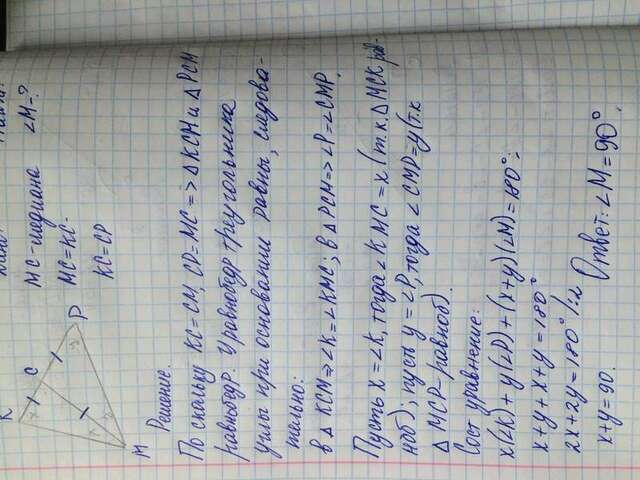 K
C
P
M
x
y
MC-медиана ∠M-?
MC=KC
KC=CP
Решение.
По скольку KC=CM, CP=MC => △KCM и △PCM
равнобедр. У равнобедр треугольника
углы при основании равны, следова-
тельно:
в △ KCM => ∠K=∠KMC; в △PCM => ∠P=∠CMP.
Пусть x=∠K, тогда ∠KMC=x (т.к. △MCK рав-
ноб); пусть y=∠P, тогда ∠CMP=y (т.к
△MCP-равноб).
Сост уравнение:
x(∠K)+y(∠P)+(x+y)(∠M)=180°;
x+y+x+y=180°
2x+2y=180° /:2
x+y=90. Ответ: ∠M=90°.